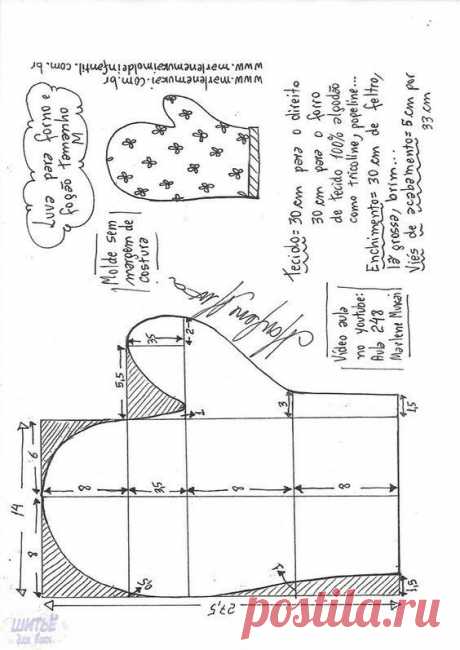 www.marlenemukai.com.br
www.marlenemukaimoldeinfantil.com.br
Luva para forno e
fogão tamanho
M
Molde sem
margem de
costura
Tecido = 30 cm para o direito
30 cm para o forro
de tecido 100% algodão
como tricoline, popeline...
Enchimento = 30 cm de feltro,
lã grossa, brim...
Viés de acabamento = 5 cm por
33 cm
Vídeo aula
no youtube:
Aula 248
Marlene Mukai
Marlene Mukai
3,5
2
5,5
1
3
1,5
6
14
8
8
3,5
8
8
0,5
1
1,5
27,5
ШИТЬЁ
для всех
postila.ru